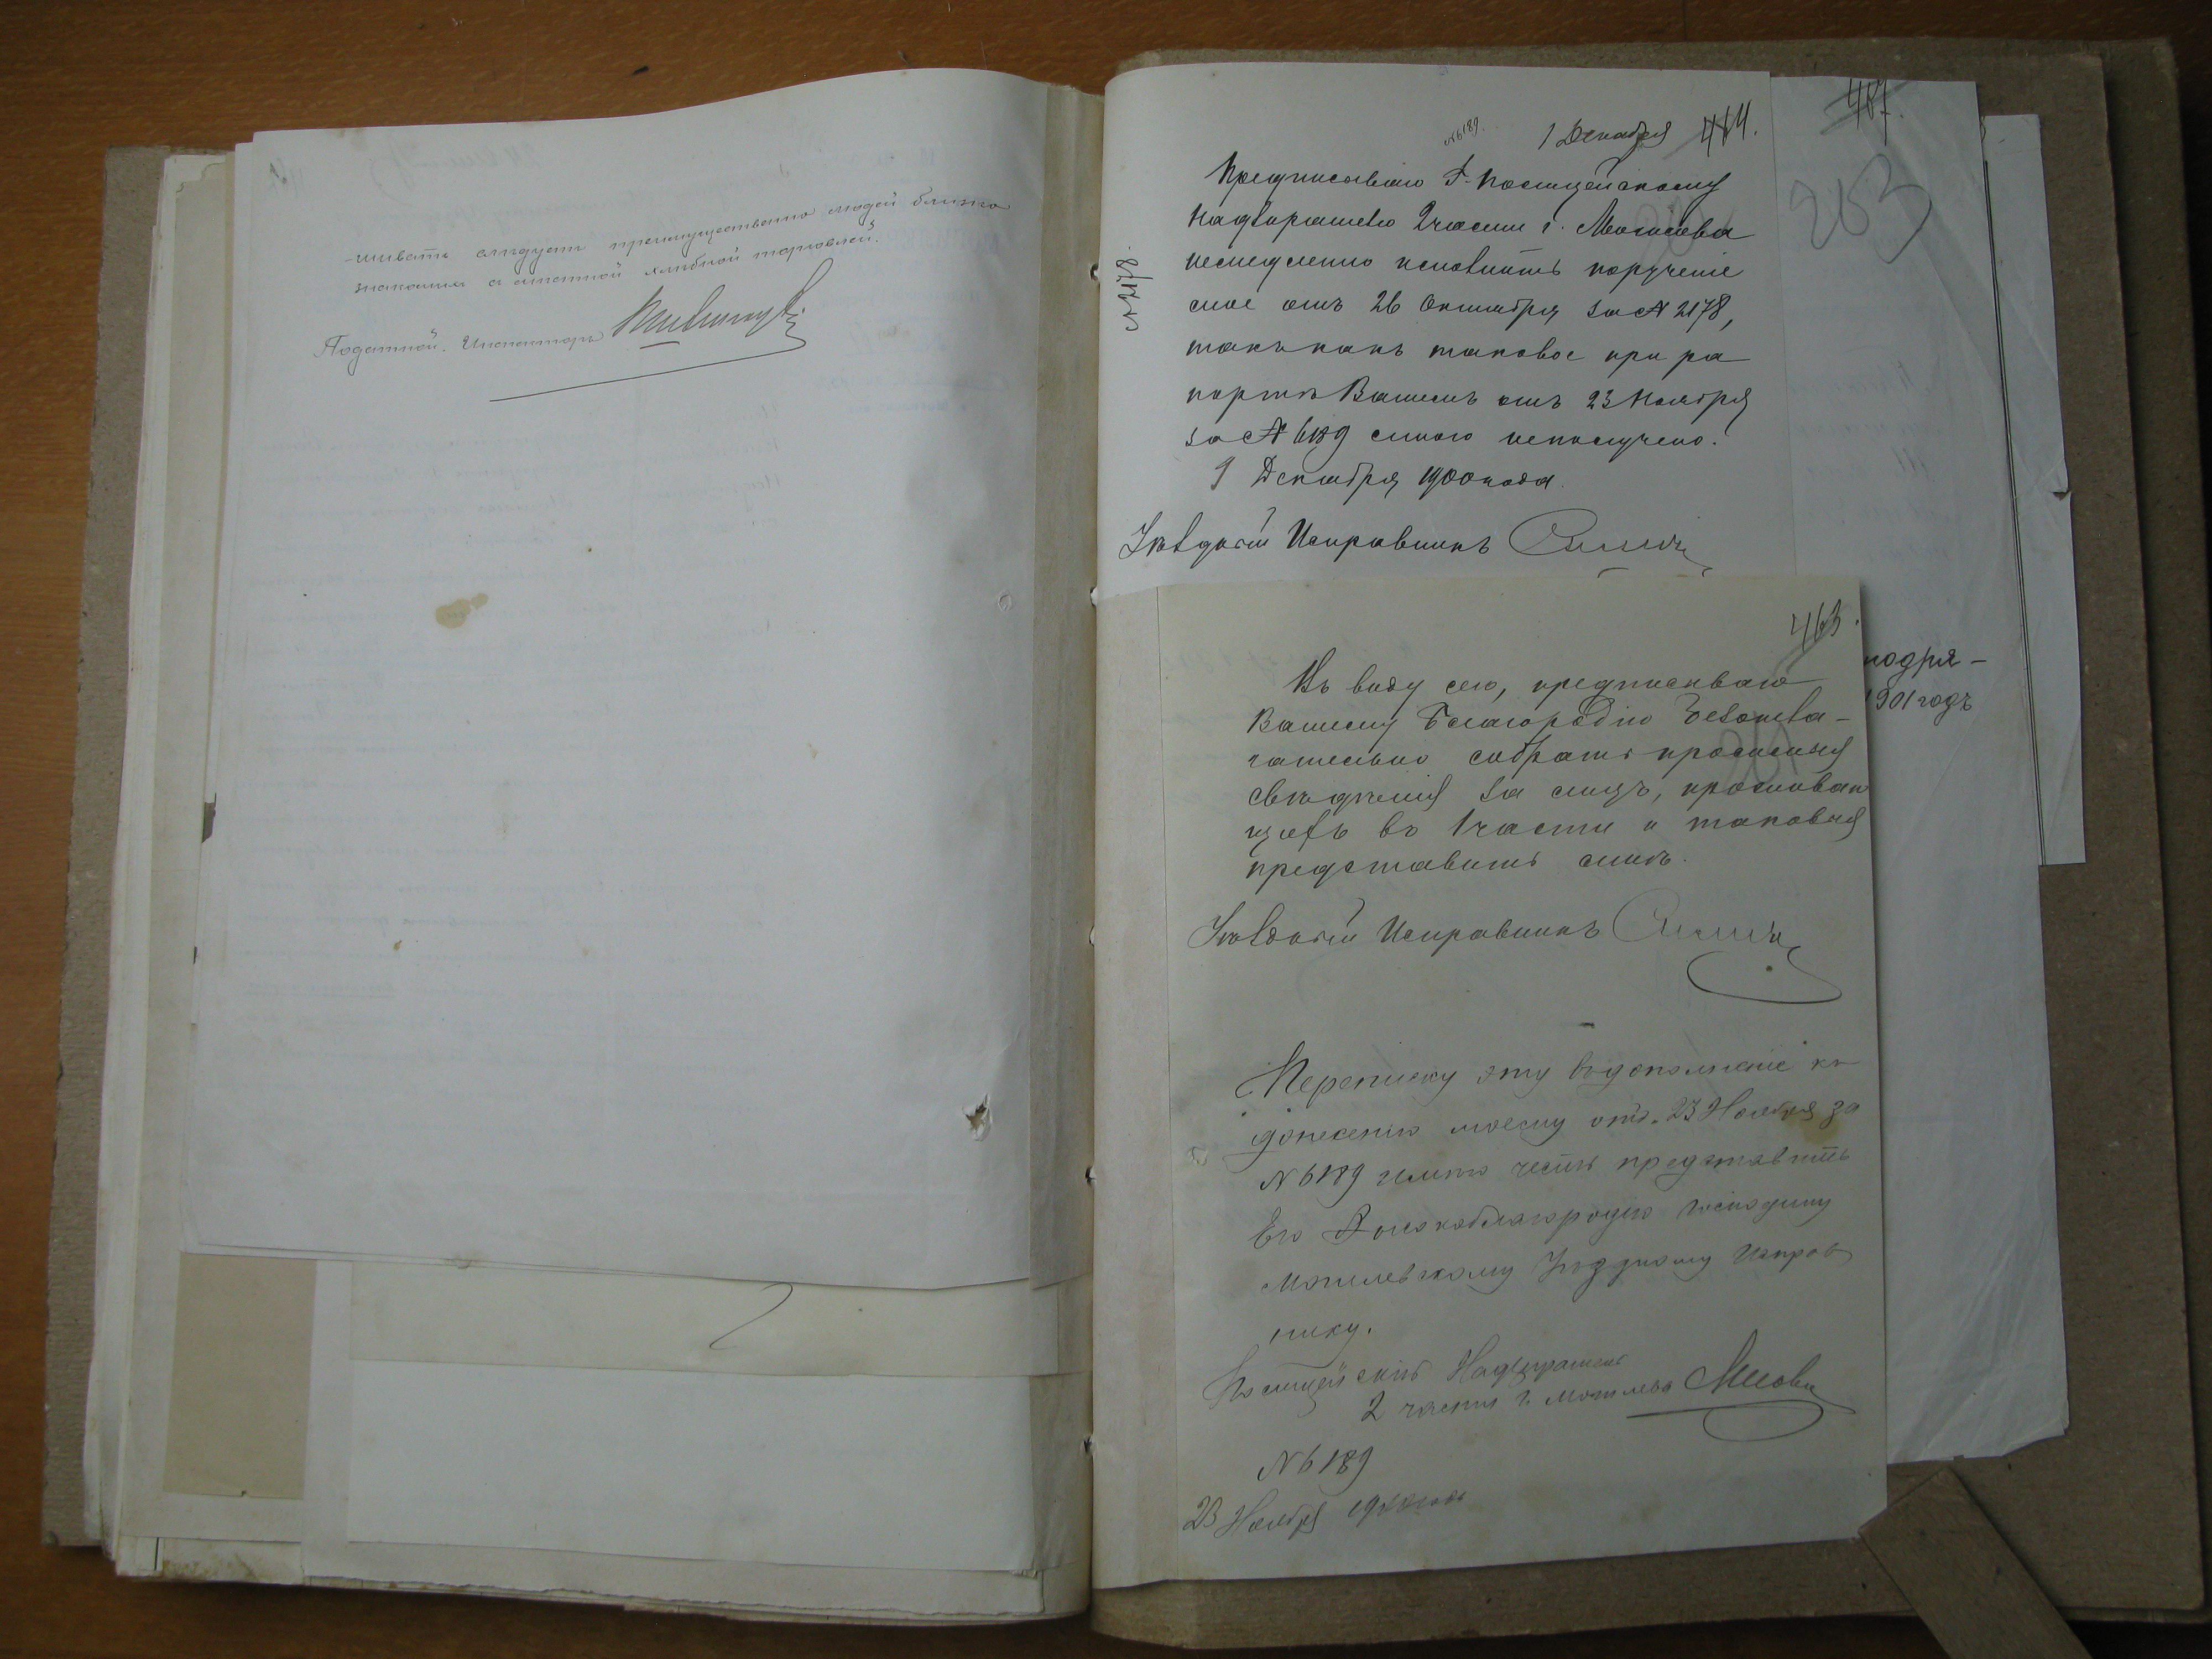 -шивать слѣдуетъ преимущественно людей близко
знакомыхъ съ мѣстной хлѣбной торговлей.
Податной Инспекторъ
№ 6189.
1 Декабря 414.
Предписываю Г. Полицейскому
Надзирателю 2 части г. Могилева
немедленно исполнить порученіе
мое отъ 26 Октября за № 2178,
такъ какъ таковое при ра
портѣ Вашемъ отъ 23 Ноября
за № 6189 мною неполучено.
9 Декабря 1900 года.
Уѣздный Исправникъ
№ 2178.
413.
Въ виду сего, предписываю
Вашему Благородію безотла-
гательно собрать просимыя
свѣдѣнія за лицъ, проживаю
щихъ во 1 части и таковыя
представить мнѣ.
Уѣздный Исправникъ
Переписку эту въдополненіе къ
донесенію моему отъ 23 Ноября за
№ 6189 имѣю честь представить
Его Высокоблагородію Господину
Могилевскому Уѣздному Исправ
нику.
Полицейскій Надзиратель
2 части г. Могилева
№ 6189
23 Ноября 1900 года
407.
263
подря-
1901 годъ